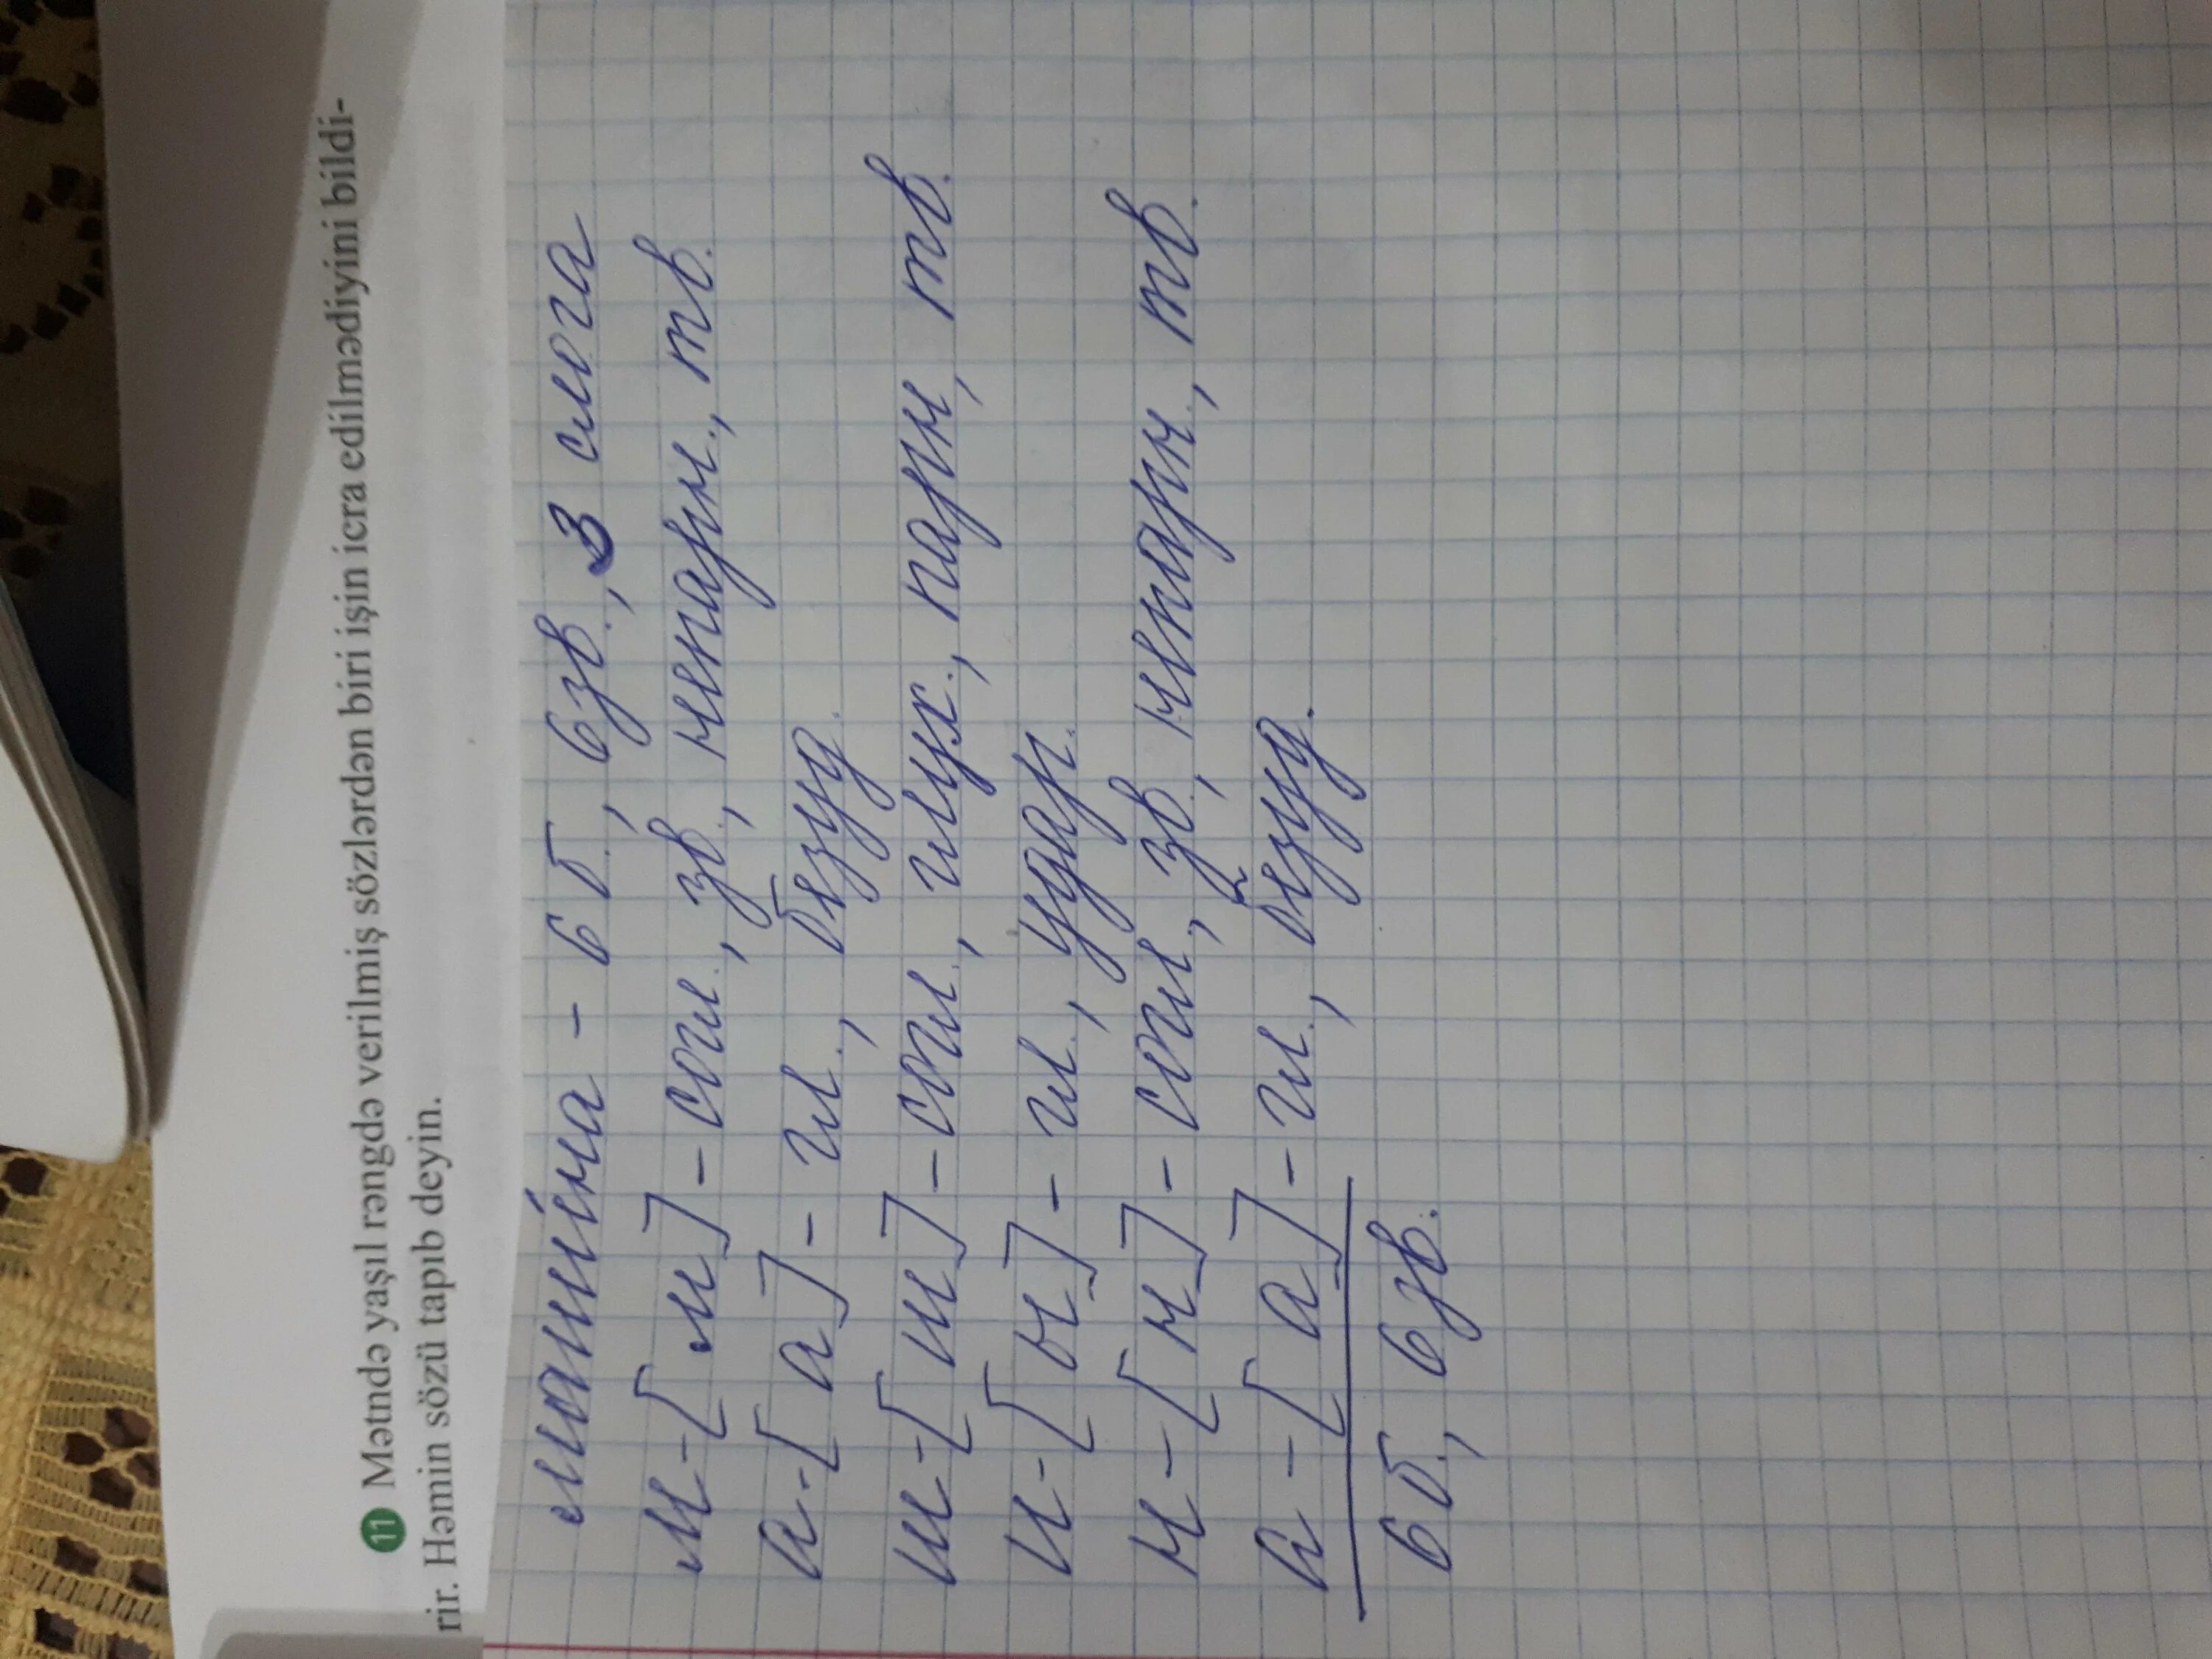 11 Mətndə yaşıl rəngdə verilmiş sözlərdən biri işin icra edilmədiyini bildi-
rir. Həmin sözü tapıb deyin.
маши́на - 6 б., 6 зв., 3 слога
м - [ м ] - согл., зв., непарн., тв.
а - [ а ] - гл., безуд.
ш - [ ш ] - согл., глух., парн, тв.
и - [ ы ] - гл., удар.
н - [ н ] - согл., зв., непарн., тв.
а - [ а ] - гл., безуд.
6 б., 6 зв.